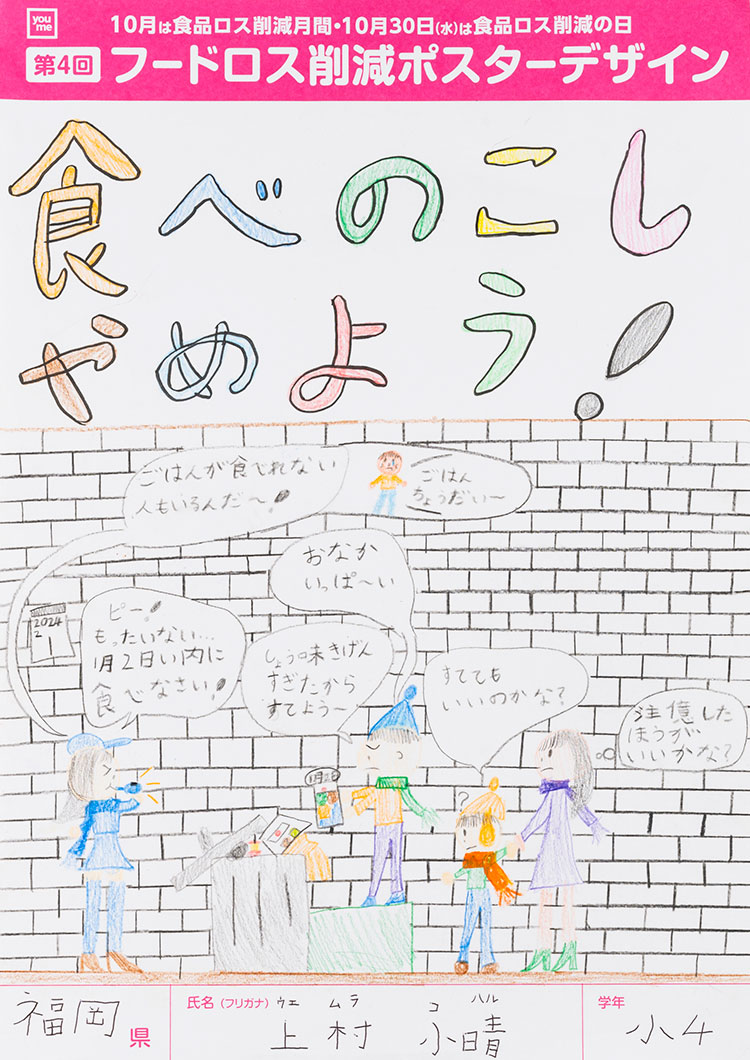 you
me
10月は食品ロス削減月間・10月30日(水)は食品ロス削減の日
第4回 フードロス削減ポスターデザイン
食べのこし
やめよう!
ごはんが食べれない
人もいるんだ〜!
ごはん
ちょうだい〜
おなか
いっぱ〜い
2024
2
1
ピー!
もったいない…
1月2日い内に
食べなさい!
しょう味きげん
すぎたから
すてよう〜
すてても
いいのかな?
注億した
ほうが
いいかな?
?
福岡県
氏名(フリガナ) ウエ ムラ コ ハル
上村 小晴
学年
小4